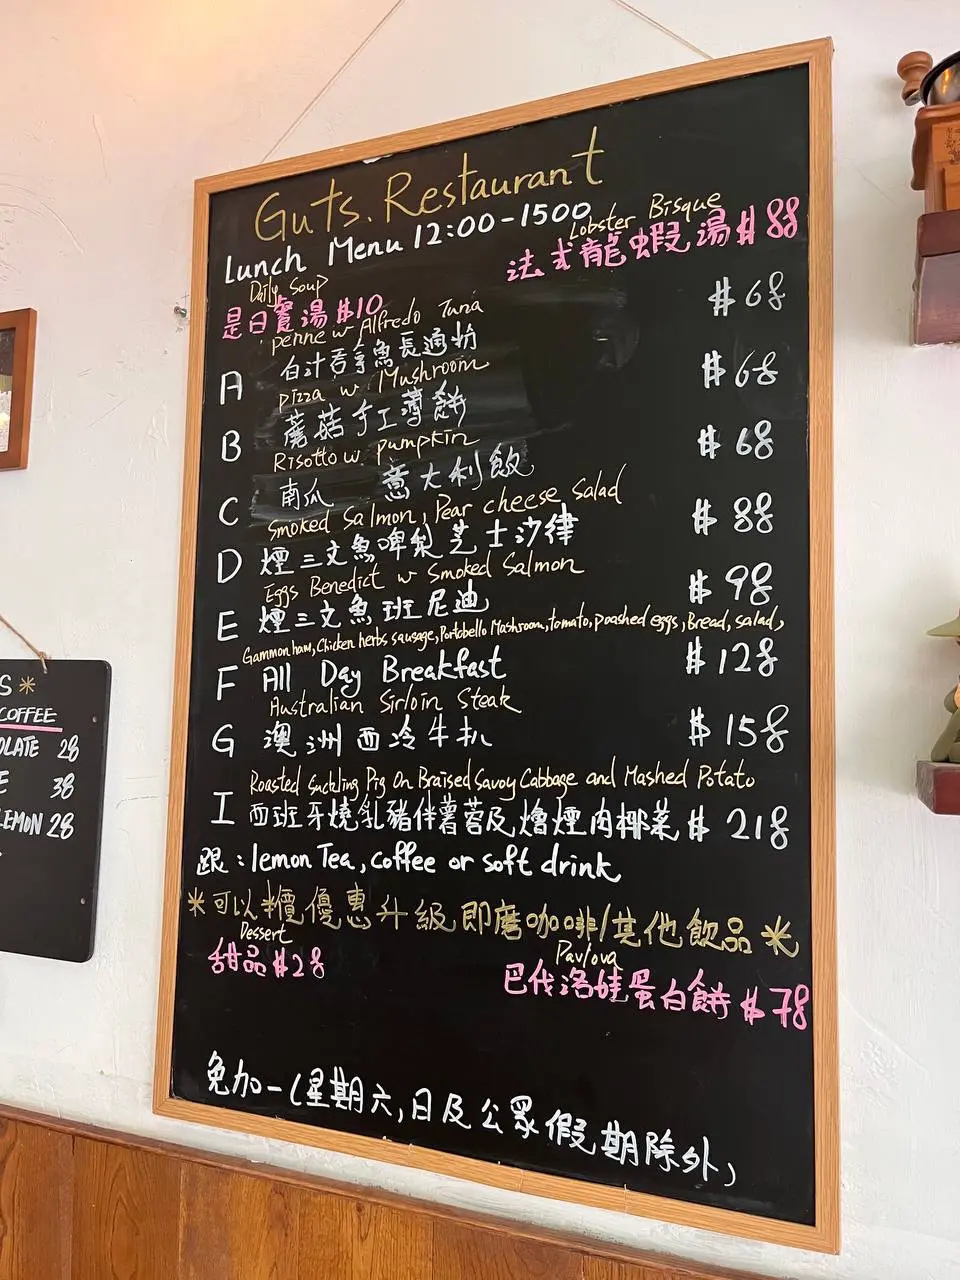 Guts. Restaurant
Lunch Menu 12:00-1500
Lobster Bisque
法式龍蝦湯 $88
Daily Soup
是日餐湯 $10
penne w Alfredo Tuna
A 白汁吞拿魚長通粉 $68
pizza w. Mushroom
B 蘑菇手工薄餅 $68
Risotto w. pumpkin
C 南瓜 意大利飯 $68
Smoked Salmon, Pear cheese Salad
D 煙三文魚啤梨芝士沙律 $88
Eggs Benedict w Smoked Salmon
E 煙三文魚班尼迪 $98
Gammon ham, Chicken herbs sausage, Portobello Mashroom, tomato, poashed eggs, Bread, salad,
F All Day Breakfast $128
Australian Sirloin Steak
G 澳洲西冷牛扒 $158
Roasted Suckling Pig On Braised Savoy Cabbage and Mashed Potato
I 西班牙燒乳豬伴薯蓉及燴煙肉椰菜 $218
跟:lemon Tea, coffee or soft drink
*可以半價優惠升級即磨咖啡/其他飲品*
Dessert
甜品 $28
Pavlova
巴伐洛娃蛋白餅 $78
免加一(星期六,日及公眾假期除外)
S *
COFFEE
OLATE 28
E 38
LEMON 28